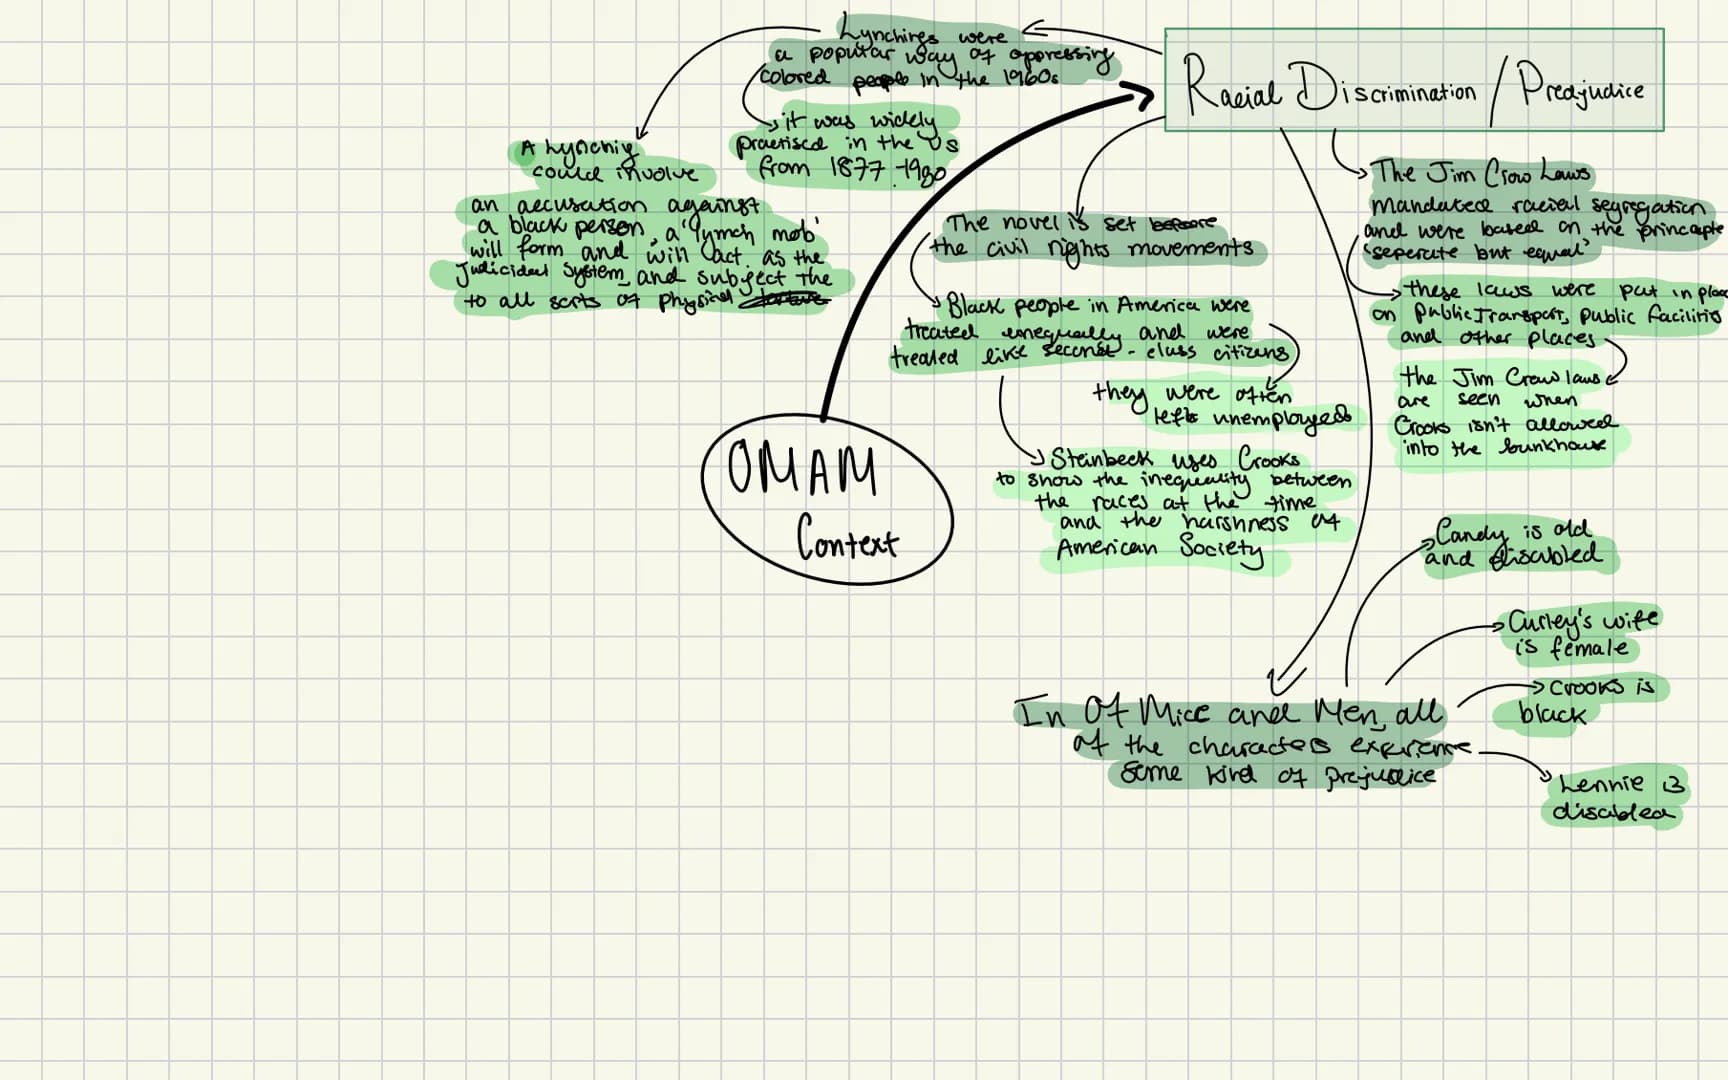 Racial Discrimination / Preajudice
Lynchings were
a popular way of oppressing
colored people in the 1960s
it was widely
practised in the US
from 1877-1980
A Lynchig
could involve
an accusation against
a black person, a 'lymch mob'
will form and will act as the
Judicideal System and subject the
to all sorts of physical torture
The novel is set before
the civil rights movements
Black people in America were
treated unequally and were
treated like second-class citizens
they were often
left unemployed
Steinbeck uses Crooks
to show the inequality between
the races at the time
and the harshness of
American Society
The Jim Crow Laws
Mandated racial segregation
and were based on the principle
'seperate but equal'
these laws were put in place
on public Transport, public facilities
and other places
the Jim Crow laws
are seen when
Crooks isn't allowed
into the bunkhouse
OMAM
Context
In Of Mice and Men, all
of the characters experience
some kind of prejudice
Candy is old
and disabled
Curley's wife
is female
Crooks is
black
Lennie is
disabled